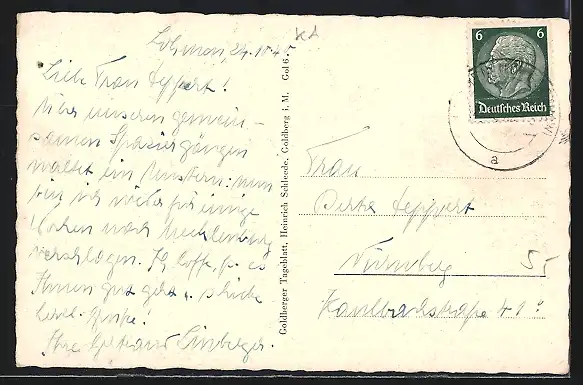 Lohmen, 24.10.40
Liebe Frau Seppert!
Über unseren gemein-
samen Spaziergängen
waltet ein Unstern: nun
bin ich wieder für einige
Wochen nach Mecklenburg
verschlagen. Ich hoffe, daß es
Ihnen gut geht u. schicke
liebe Grüße!
Ihre
Goldberger Tageblatt, Heinrich Schleede, Goldberg i. M. Gol 6.
6 6
Deutsches Reich
a
Frau
Berta Seppert
Nürnberg
Kaulbachstraße 41